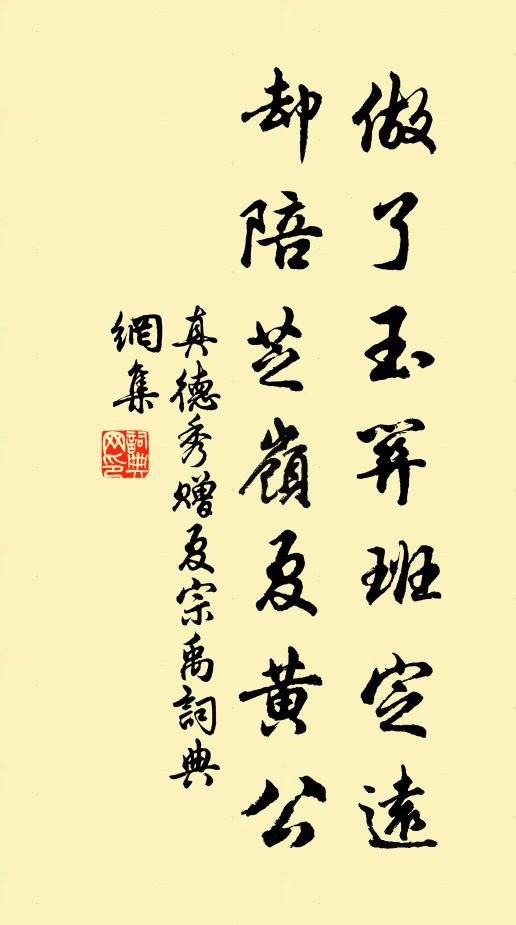 做了玉関班定遠
却陪芝嶺夏黄公
真德秀贈夏宗禹詞典
網集
詞典
网印